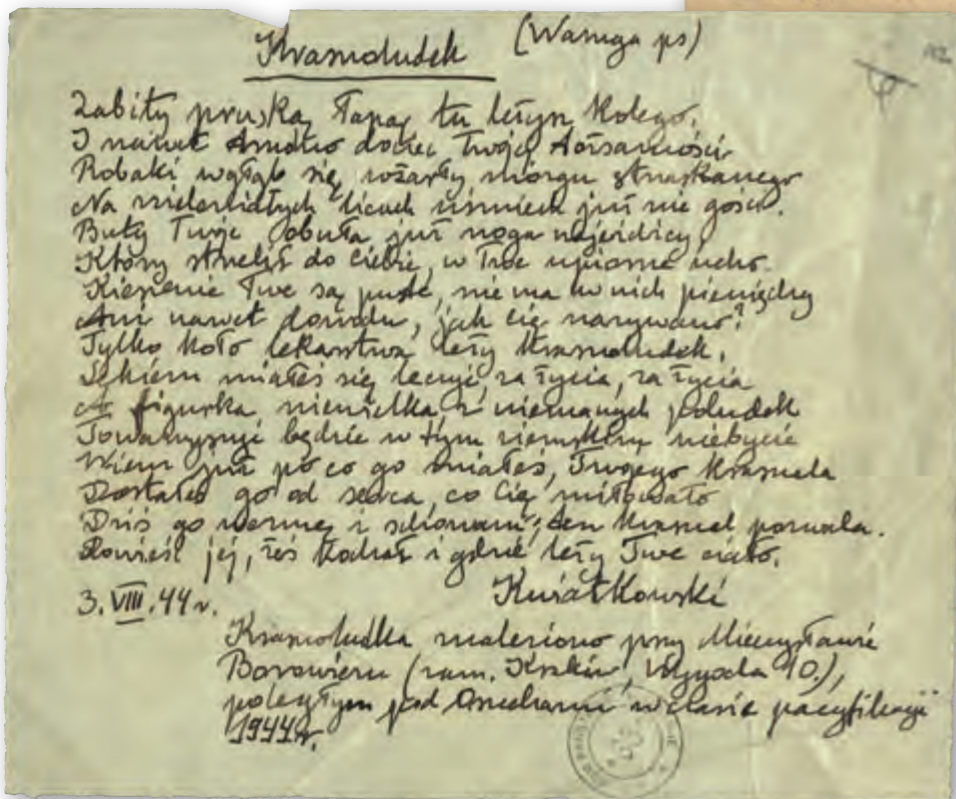 Krasnoludek (Waruga ps)
Zabity pruską łapą tu leżysz Kolego.
I nawet trudno dociec Twojej tożsamości
Robaki wgłąb się wżarły mózgu strzaskanego
Na zzieleniałych licach uśmiech już nie gości.
Buty Twoje obuła już noga najeźdźcy
Który strzelił do Ciebie, w Twe upiorne ucho.
Kieszenie Twe są puste, nie ma w nich pieniędzy
Ani nawet dowodu, jak Cię nazywano?
Tylko koło lekarstwa leży Krasnoludek,
Lekiem miałeś się leczyć za życia, za życia
A figurka niewielka z nieznanych pobudek
Towarzyszyć będzie w tym ziemskim niebycie
Wiem już po co go miałeś, Twojego Krasnala
Dostałeś go od serca, co Cię miłowało
Dziś go wezmę i schowam, ten Krasnal pozwala.
Powieść jej, żeś kochał i gdzie leży Twe ciało.
3.VIII.44r. Kwiatkowski
Krasnoludka znaleziono przy Mieczysławie
Borowiecu (zam. Kraków, Wygoda 10.),
poległym pod w czasie pacyfikacji
1944r.